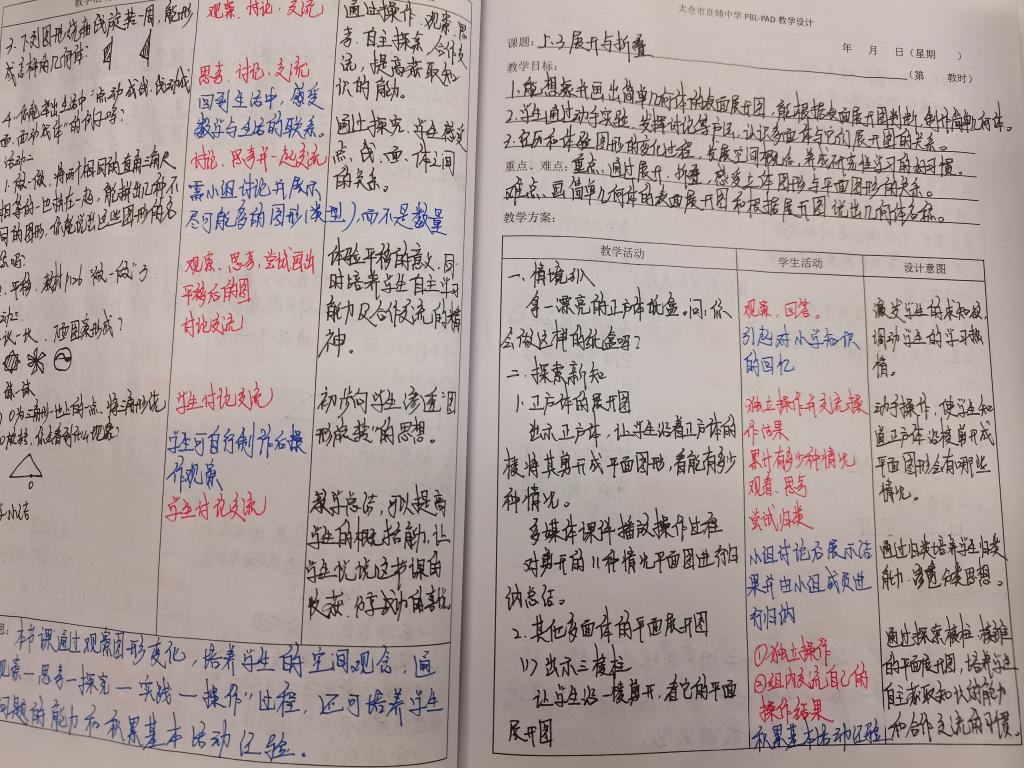 教学活动
观察、讨论、交流
3.下列图形绕轴线旋转一周,能形
成怎样的几何体?
思考、讨论、交流
回到生活中,感受
数学与生活的联系。
4.你能举出生活中"点动成线,线动成
面,面动成体"的例子吗?
活动二
讨论、思考并一起交流
需小组讨论并展示
尽可能多的图形(类型),而不是数量
1.做一做,将两个相同的直角三角尺
相等的一边拼在一起,能拼出几种不
同的图形,你能说出这些图形的名
观察、思考,尝试画出
平移后的图
讨论交流
平移,教材P126"做一做"3
图案形成?
学生讨论交流
学生可自行制作后操
作观察
学生讨论交流
O为三角形
O
小结
通过操作、观察、思
考、自主探索、合作交
流,提高获取知
识的能力。
通过探究,学生感受
点、线、面、体之间
的关系。
体验平移的意义,同
时培养学生自主学习
能力及合作交流的精
神。
初步向学生渗透"图
形旋转"的思想。
教学总结,可以提高
学生的概括能力,让
学生说说这节课的
收获,分享成功的喜悦。
本节课通过观察图形变化,培养学生的空间观念,通
观察—思考—探究—实践—操作"过程,还可培养学生
问题的能力和积累基本活动经验。
太仓市良辅中学 PBL-PAD 教学设计
课题:上.3 展开与折叠 年 月 日(星期 )
(第 教时)
教学目标:
1.能想象并画出简单几何体的表面展开图,能根据表面展开图判断、制作简单几何体。
2.学生通过动手实验,发挥讨论等方法,认识多面体与它们展开图的关系。
3.在历和体验图形的变化过程,发展空间概念,养成研究性学习的好习惯。
重点、难点:重点、通过展开、折叠,感受立体图形与平面图形的关系。
难点、画简单几何体的表面展开图和根据展开图说出几何体名称。
教学方案:
教学活动 学生活动 设计意图
一、情境引入
拿一漂亮的正方体纸盒。问:你
会做这样的纸盒吗?
观察,回答。
引起对小学知识
的回忆
激发学生的求知欲,
调动学生的学习热
情。
二、探索新知
1.正方体的展开图
出示正方体,让学生沿着正方体的
棱将其剪开成平面图形,看能有多少
种情况。
独立操作并交流操
作结果
累计有多少种情况
观看、思考
尝试归类
动手操作,使学生知
道正方体沿棱剪开成
平面图形会有哪些
情况。
多媒体课件播放操作过程
对剪开的11种情况平面图进行归
纳总结。
小组讨论后展示结
果并由小组成员进
行归纳
通过归类培养学生归类
能力,渗透分类思想。
2.其他多面体的平面展开图
(1)出示三棱柱
让学生沿一棱剪开,看它的平面
展开图
①独立操作
②组内交流自己的
操作结果
积累基本活动经验
通过探索棱柱、棱锥
的平面展开图,培养学生
自主获取知识的能力
和合作交流的习惯。